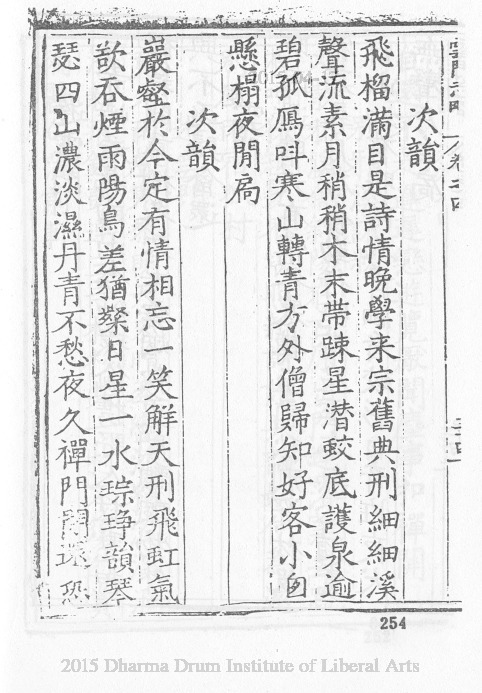 雲門志略 卷之四
次韻
飛榴滿目是詩情晚學来宗舊典刑細細溪
聲流素月稍稍木末帶踈星潛蛟底護泉逾
碧孤鴈呌寒山轉青方外僧歸知好客小囱
懸榻夜閒扃
次韻
巖壑於今定有情相忘一笑觧天刑飛虹氣
欲吞煙雨陽鳥差猶粲日星一水琮琤韻琴
瑟四山濃淡濕丹青不愁夜久禪門
254
2015 Dharma Drum Institute of Liberal Arts